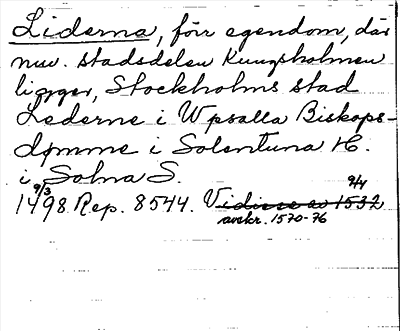 Liderna, förr egendom, där
nuv. stadsdelen Kungsholmen
ligger, Stockholms stad
Lederne i Wpsalla Biskops-
dømme i Solentuna H.
i Solna S.
9/3 9/4
1498 Rep. 8544. Vidisse av 1532
avskr. 1570-76